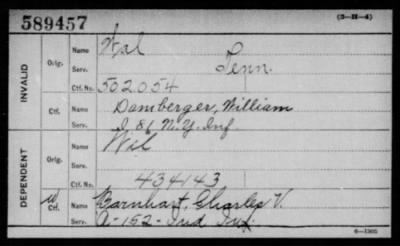 589457 (3-H-4)
INVALID
Orig. Name Wal
Serv. Tenn.
Ctf. No. 502054
Ctf. Name Damberger, William
Serv. I. 86 N.Y. Inf
DEPENDENT
Orig. Name Wil
Serv.
Ctf. No. 434143
W Ctf. Name Barnhart, Charles V.
Serv. A-152-Ind Inf.